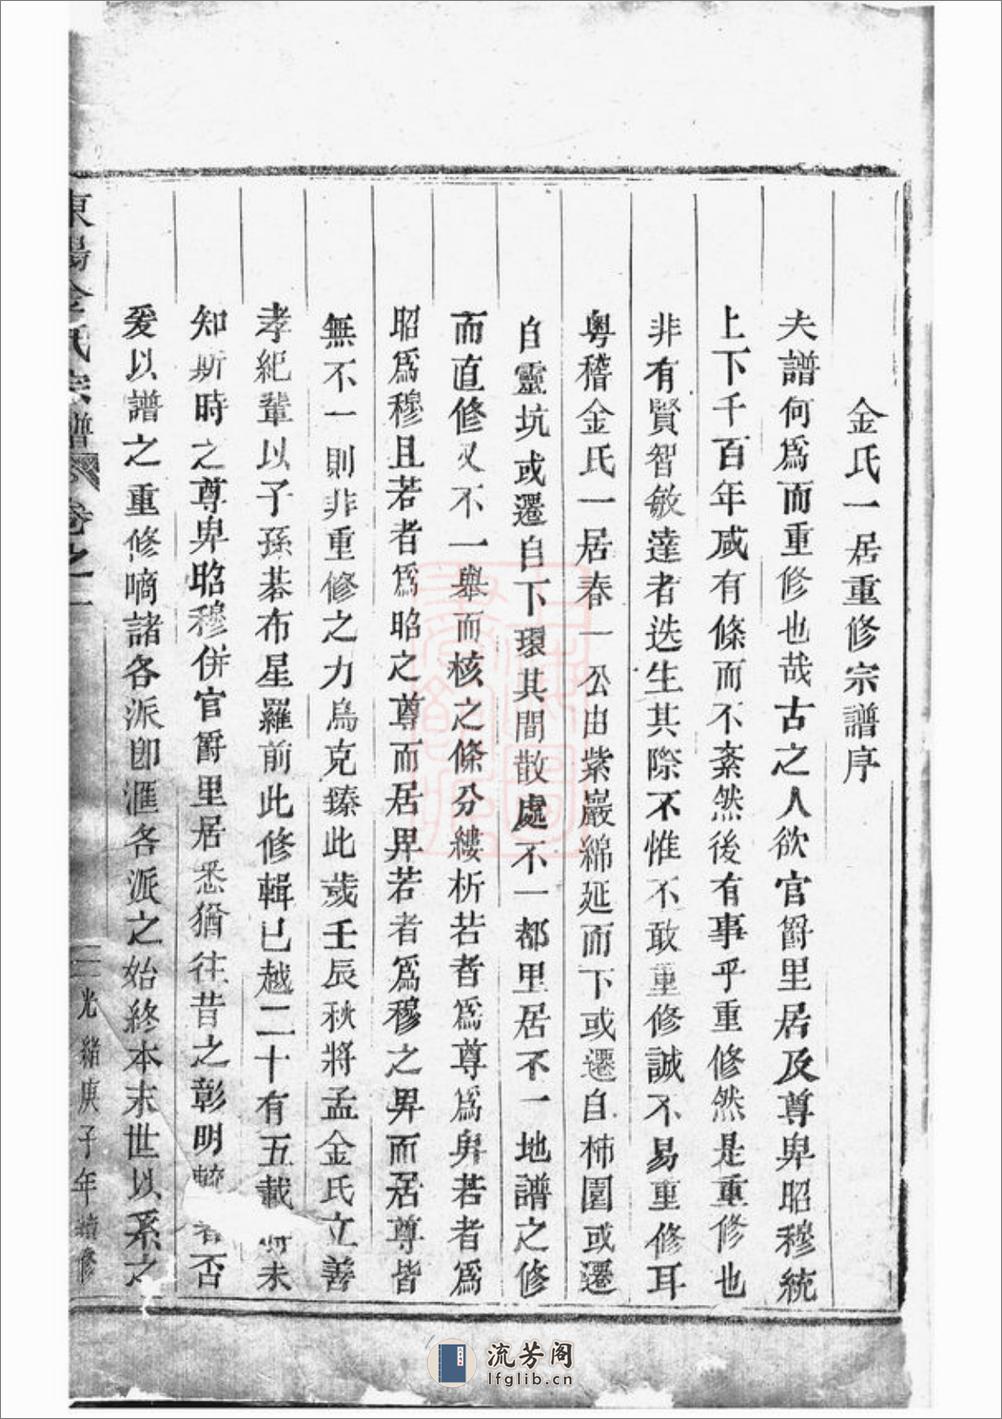 金氏一居重修宗譜序
夫譜何爲而重修也哉古之人欲官爵里居及尊卑昭穆統
上下千百年咸有條而不紊然後有事乎重修然是重修也
非有賢智敏達者迭生其際不惟不敢重修誠不易重修耳
粤稽金氏一居春一公由紫巖綿延而下或遷自柿園或遷
自靈坑或遷自下環其間散處不一都里居不一地譜之修
而直修又不一舉而核之條分縷析若者爲尊爲卑若者爲
昭爲穆且若者爲昭之尊而居卑若者爲穆之卑而居尊皆
無不一則非重修之力烏克臻此歲壬辰秋將孟金氏立善
孝紀輩以子孫棊布星羅前此修輯已越二十有五載 未
知斯時之尊卑昭穆併官爵里居悉猶往昔之彰明 著否
爰以譜之重修囑諸各派卽滙各派之始終本末世以系之
東陽金氏宗譜 卷之一 一 光緒庚子年續修
流芳阁
lfglib.cn